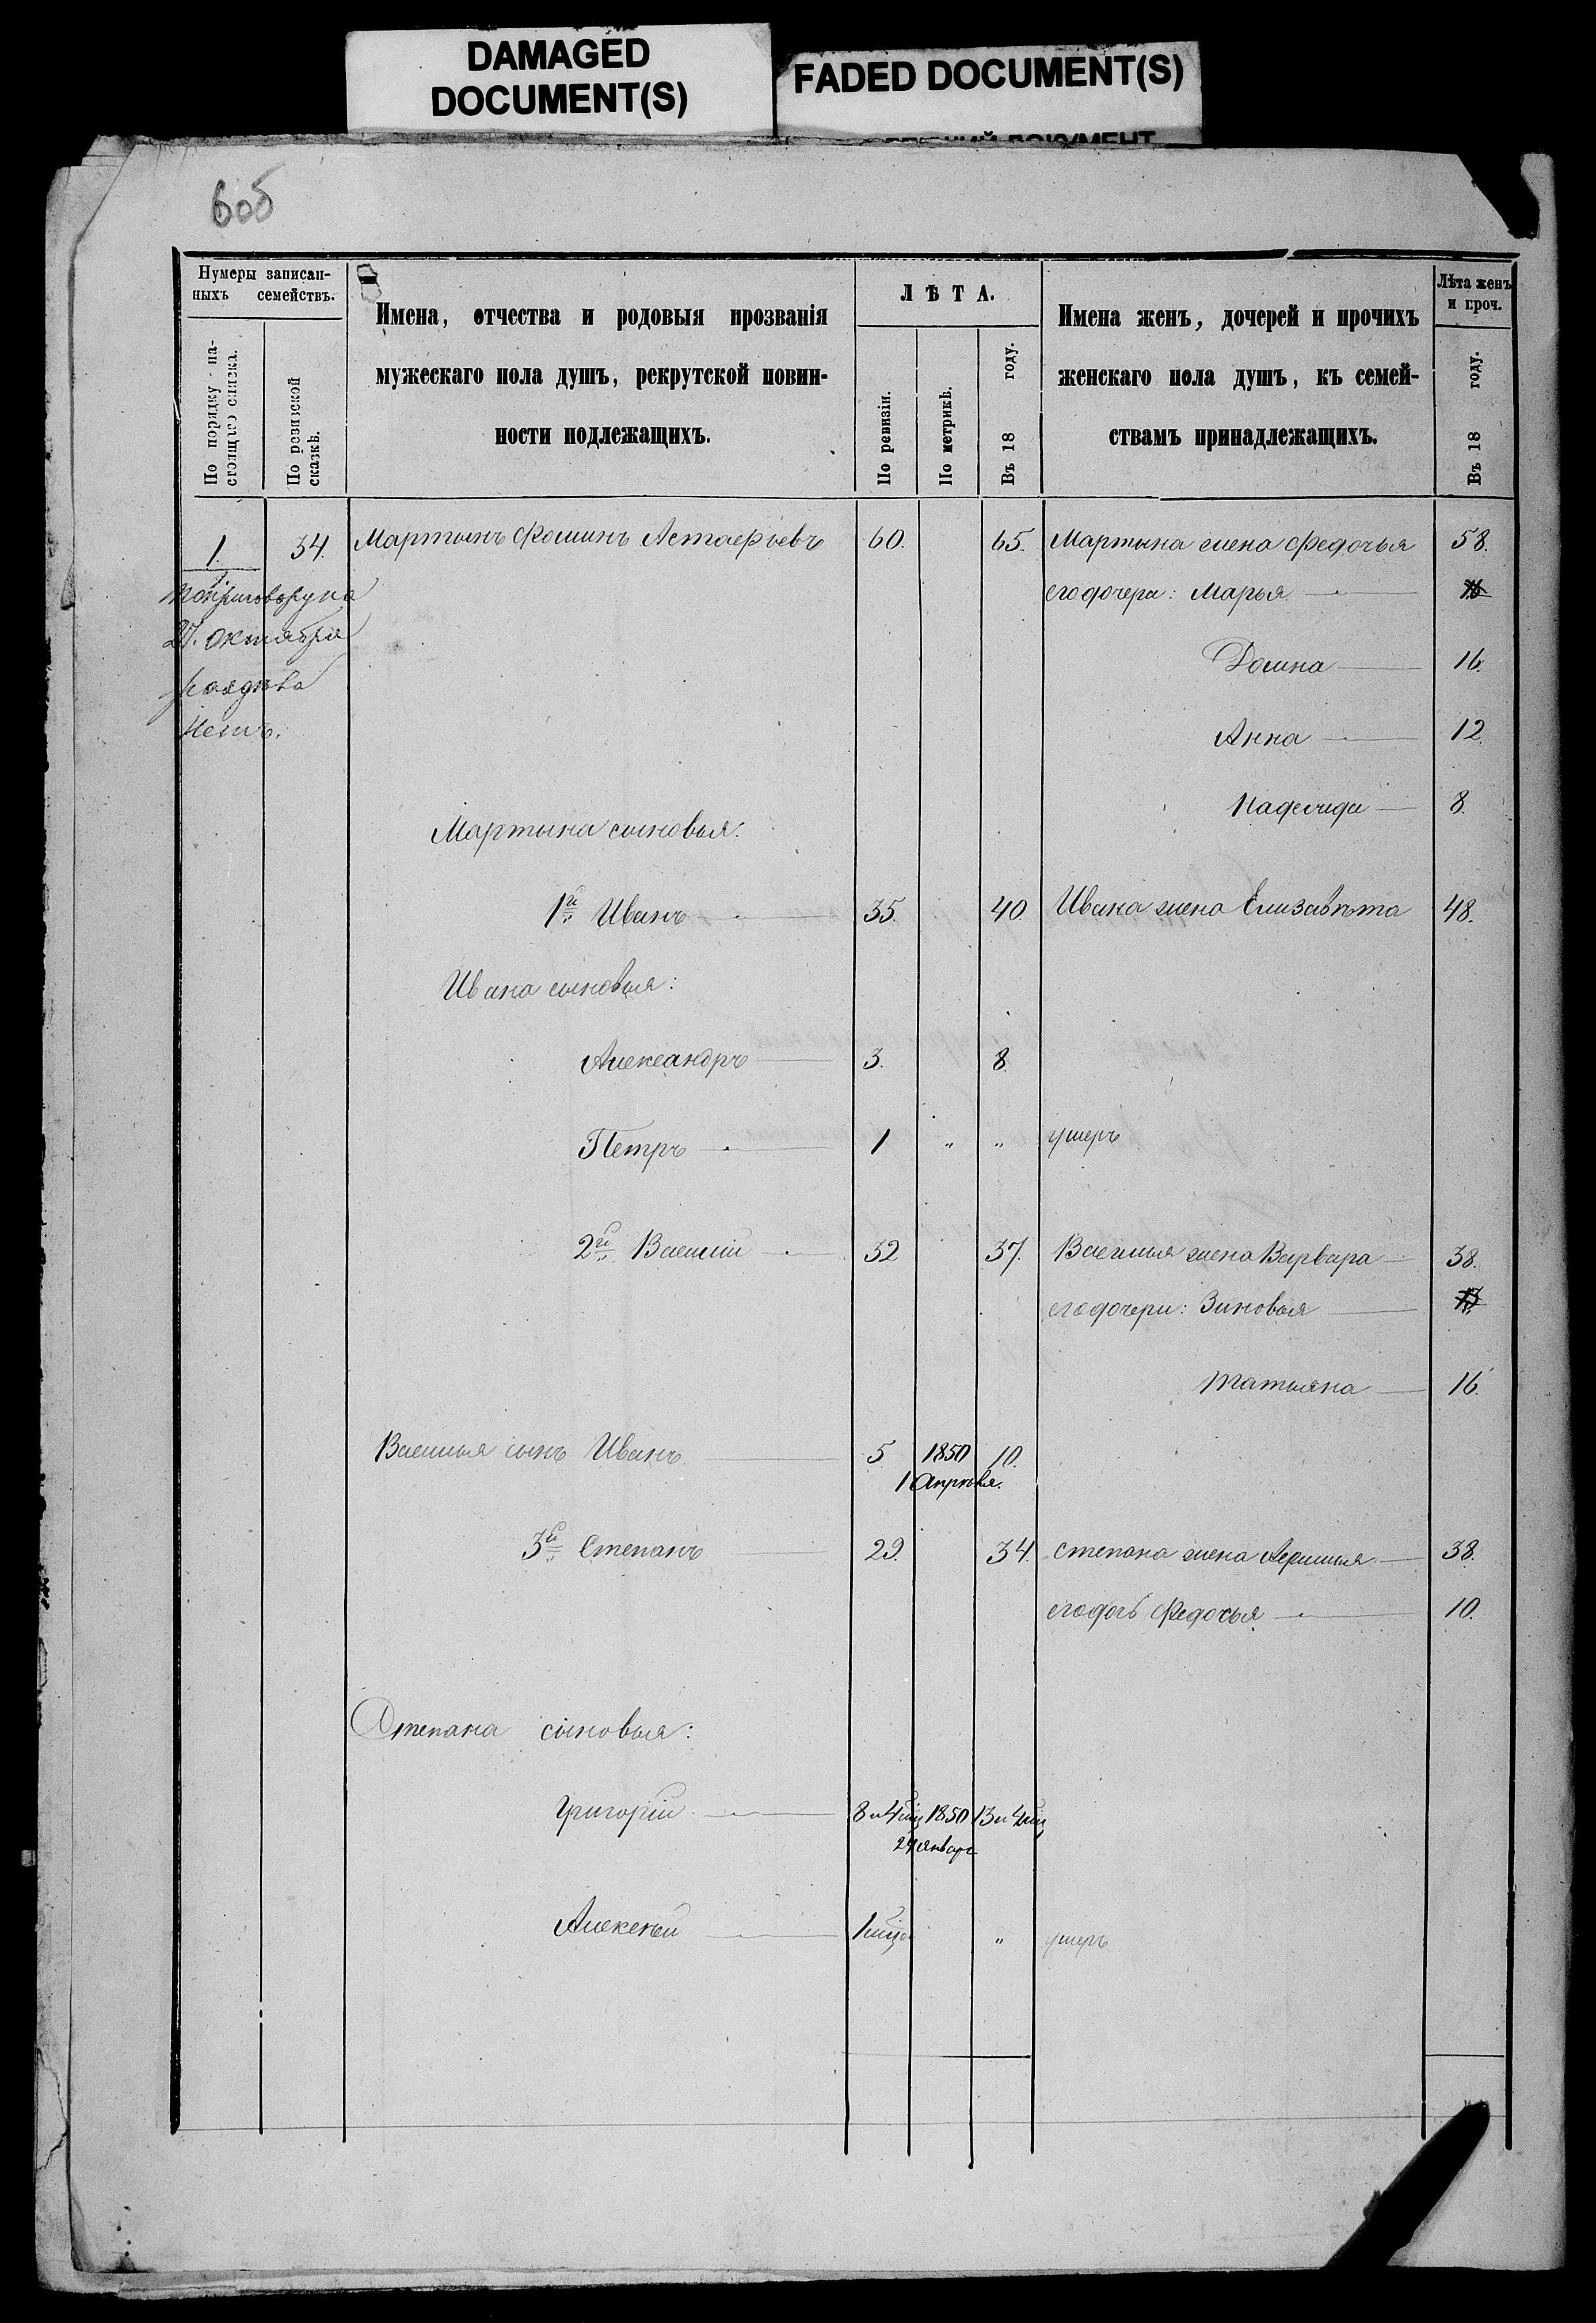 DAMAGED
DOCUMENT(S)
FADED DOCUMENT(S)
ДОКУМЕНТ
606
Нумеры записан-
ныхъ семействъ.
По порядку на-
стоящаго списка.
По ревизской
сказкѣ.
Имена, отчества и родовыя прозванія
мужескаго пола душъ, рекрутской повин-
ности подлежащихъ.
ЛѢТА.
По ревизіи.
По метрикѣ.
Въ 18 году.
Имена женъ, дочерей и прочихъ
женскаго пола душъ, къ семей-
ствамъ принадлежащихъ.
Лѣта женъ
и проч.
Въ 18 году.
1. 34. Мартынъ Фоминъ Астафьевъ 60. 65. Мартына жена Федосья 58.
По приговору на
27. Октября
его дочери: Марья
Домна 16.
Анна 12.
Надежда 8.
Мартына сыновья:
1й Иванъ 35. 40 Ивана жена Елизавѣта 48.
Ивана сыновья:
Александръ 3. 8.
Петръ 1 " " умеръ
2й Василій 32 37. Василья жена Варвара 38.
его дочери: Зиновья
Татьяна 16.
Василья сынъ Иванъ 5 1850 10.
1 Апрѣля.
3й Степанъ 29. 34. Степана жена 38.
его дочь Федосья 10.
Степана сыновья:
Григорій 8 и 4 мѣц 1850 13 и 4 мѣц
24 Январ
Алексѣй 1 мѣца " умеръ